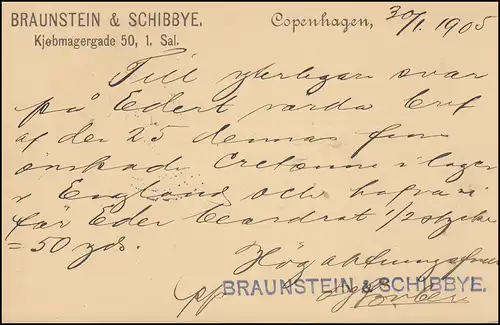 BRAUNSTEIN & SCHIBBYE.
Kjøbmagergade 50, 1. Sal.
Copenhagen, 30/1. 1905
Till ytterligare svar
på Edert värda bref
af den 25 dennes finn
önskade Cretonne i lager
i England och hafva vi
för Eder beordrat 1/2 stycke
= 50 yds.
Högaktningsfullt
pp BRAUNSTEIN & SCHIBBYE.